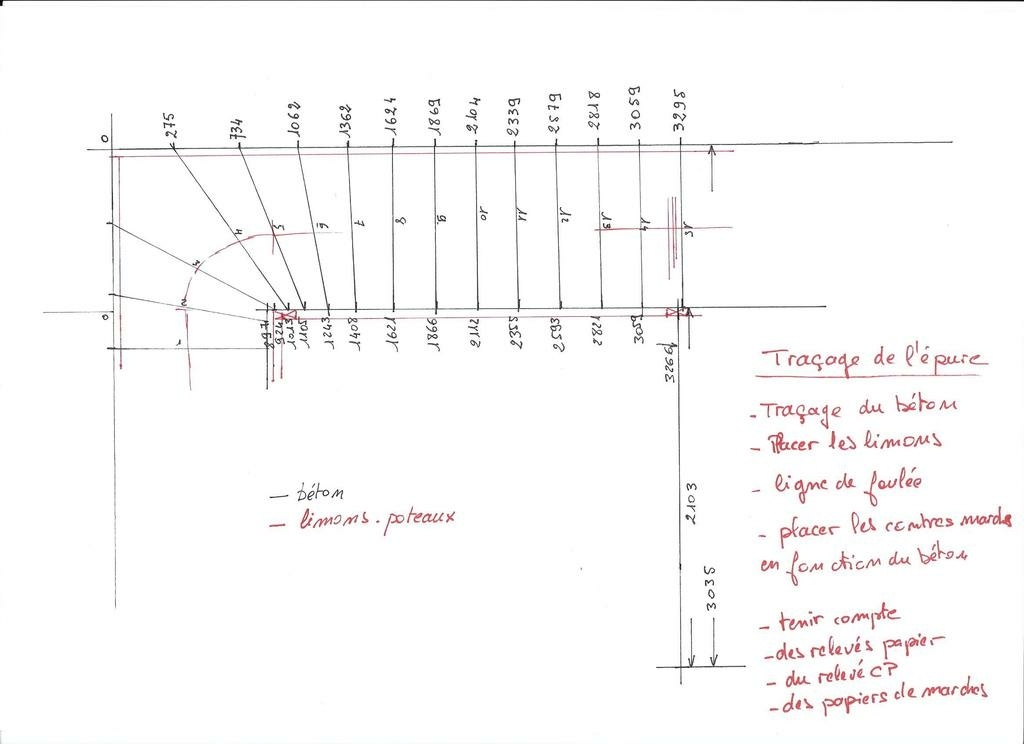 0
275
734
1062
1362
1624
1869
2104
2339
2579
2818
3059
3295
1
2
3
4
5
6
7
8
9
10
11
12
13
14
15
0
897
924
1013
1105
1243
1408
1621
1866
2112
2355
2593
2821
3059
3266
2103
3035
— béton
— limons. poteaux
Traçage de l'épure
- Traçage du béton
- Placer les limons
- ligne de foulée
- placer les contres marches
en fonction du béton
- tenir compte
- des relevés papier
- du relevé CP
- des papiers de marches